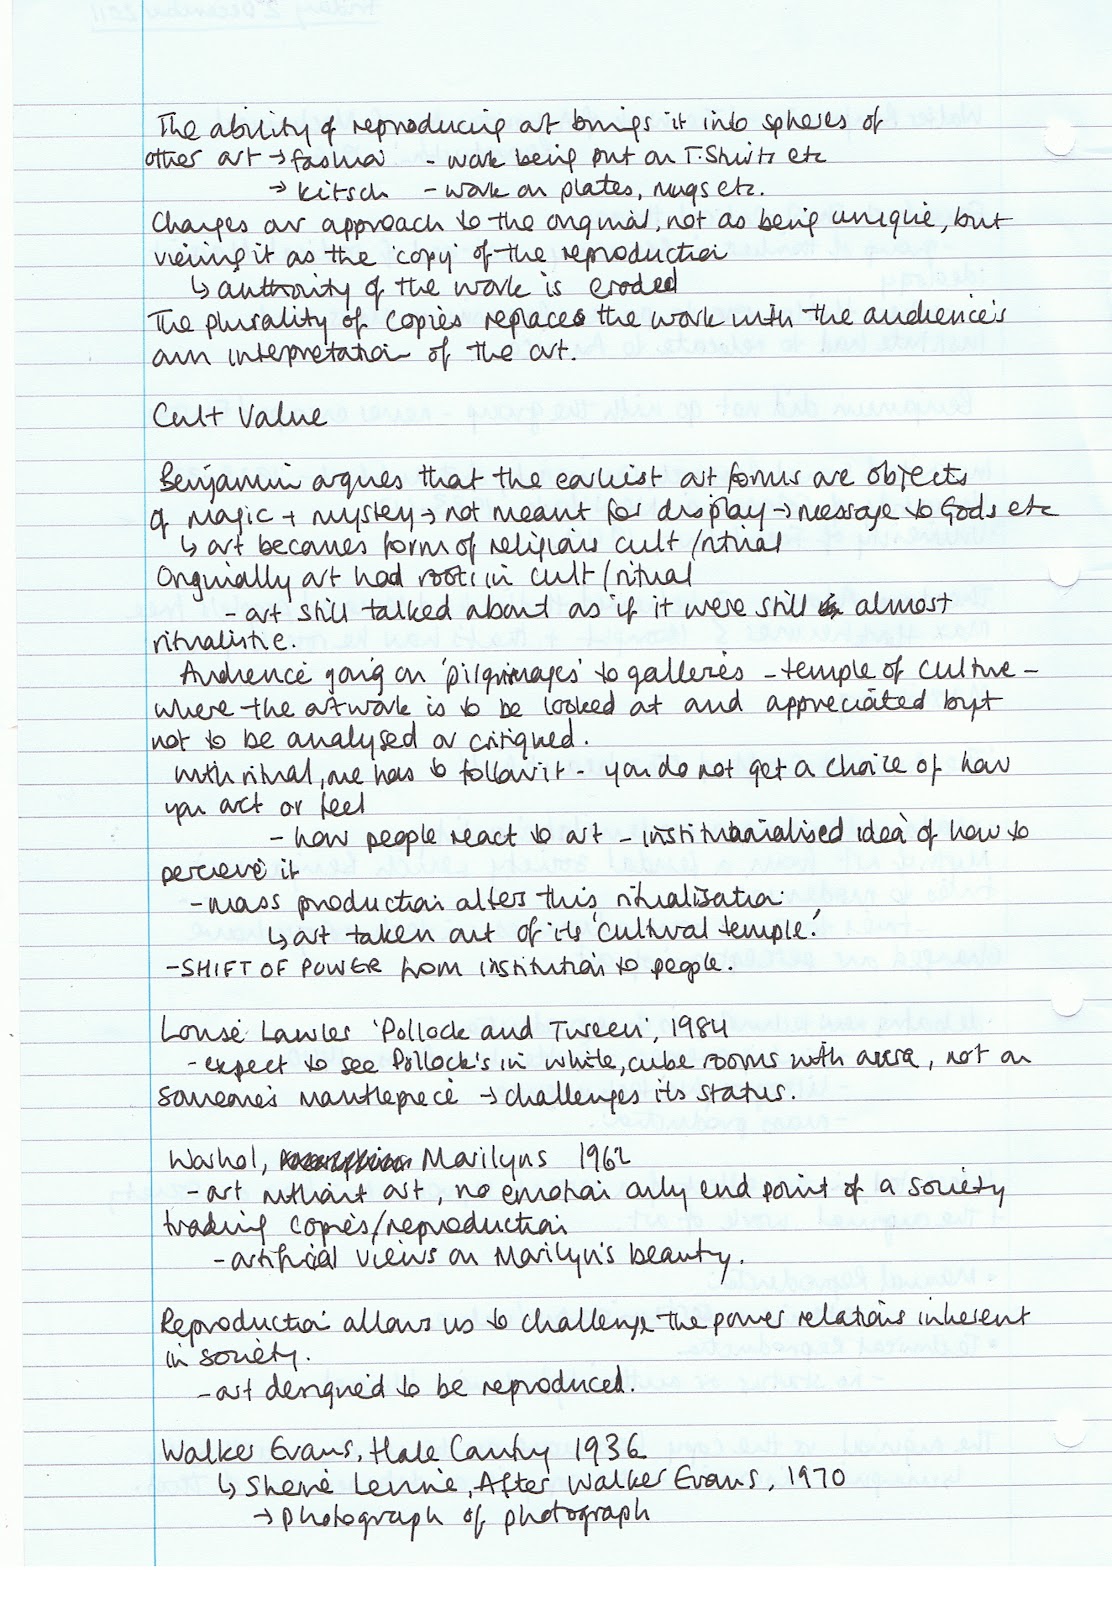 The ability of reproducing art brings it into spheres of
other art → fashion - work being put on T.Shirts etc
→ kitsch - work on plates, mugs etc.
Changes our approach to the original, not as being unique, but
viewing it as the 'copy' of the reproduction
↳ authority of the work is eroded
The plurality of copies replaces the work with the audience's
own interpretation of the art.
Cult Value
Benjamin argues that the earliest art forms are objects
of magic + mystery → not meant for display → message to Gods etc
↳ art becomes form of religious cult/ritual
Originally art had roots in cult/ritual
- art still talked about as if it were still almost
ritualistic.
Audience going on 'pilgrimages' to galleries - temple of culture -
where the artwork is to be looked at and appreciated but
not to be analysed or critiqued.
With ritual, one has to follow it - you do not get a choice of how
you act or feel
- how people react to art - institutionalised idea of how to
perceive it
- mass production alters this ritualisation
↳ art taken out of its 'cultural temple'.
- SHIFT OF POWER from institution to people.
Louise Lawler 'Pollock and Tureen', 1984
- expect to see Pollock's in white, cube rooms with aura, not on
someone's mantlepiece → challenges its status.
Warhol, Marilyns 1962
- art without art, no emotion only end point of a society
trading copies/reproduction
- artificial views on Marilyn's beauty.
Reproduction allows us to challenge the power relations inherent
in society.
- art designed to be reproduced.
Walker Evans, Hale County 1936
↳ Sherrie Levine, After Walker Evans, 1970
→ photograph of photograph